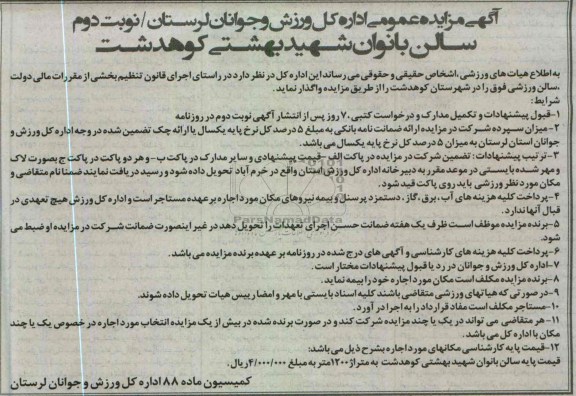 آگهی مزایده عمومی اداره کل ورزش و جوانان لرستان / نوبت دوم
سالن بانوان شهید بهشتی کوهدشت
به اطلاع هیات های ورزشی ،اشخاص حقیقی و حقوقی می رساند این اداره کل در نظر دارد در راستای اجرای قانون تنظیم بخشی از مقررات مالی دولت
،سالن ورزشی فوق را در شهرستان کوهدشت را از طریق مزایده واگذار نماید.
شرایط:
۱-قبول پیشنهادات و تکمیل مدارک و درخواست کتبی ۷۰ روز پس از انتشار آگهی نوبت دوم در روزنامه
۲-میزان سپرده شرکت در مزایده ارائه ضمانت نامه بانکی به مبلغ ۵ درصد کل نرخ پایه یکسال یا ارائه چک تضمین شده در وجه اداره کل ورزش و
جوانان استان لرستان به میزان ۵ درصد کل نرخ پایه یکسال می باشد.
۳-ترتیب پیشنهادات : تضمین شرکت در مزایده در پاکت الف -قیمت پیشنهادی و سایر مدارک در پاکت ب - و هر دو پاکت در پاکت ج بصورت لاک
و مهر شده بایستی در موعد مقرر به دبیرخانه اداره کل ورزش استان واقع در خرم آباد تحویل داده شود و رسید دریافت نمایند ضمنا نام متقاضی و
مکان مورد نظر ورزشی باید روی پاکت قید شود.
۴-پرداخت کلیه هزینه های آب ،برق ،گاز ، دستمزد پرسنل و بیمه نیروهای مکان مورد اجاره بر عهده مستاجر است و اداره کل ورزش هیچ تعهدی در
قبال آنها ندارد.
۵-برنده مزایده موظف است ظرف یک هفته ضمانت حسن اجرای تعهدات را تحویل دهد در غیر اینصورت ضمانت شرکت در مزایده او ضبط می
شود.
۶-پرداخت کلیه هزینه های کارشناسی و آگهی های درج شده در روزنامه بر عهده برنده مزایده می باشد.
۷-اداره کل ورزش و جوانان در رد یا قبول پیشنهادات مختار است.
۸-برنده مزایده مکلف است مکان مورد اجاره خود را بیمه نماید.
۹-در صورتی که هیاتهای ورزشی متقاضی باشند کلیه اسناد بایستی با مهر و امضا رییس هیات تحویل داده شوند.
۱۰-مستاجر مکلف است مفاد قرارداد را به اجرا در آورد.
۱۱-هر متقاضی می تواند در یک یا چند مزایده شرکت کند و در صورت برنده شده در بیش از یک مزایده انتخاب مورد اجاره در خصوص یک یا چند
مکان با اداره کل می باشد.
۱۲-قیمت پایه کارشناسی مکانهای مورد اجاره بشرح ذیل می باشد:
قیمت پایه سالن بانوان شهید بهشتی کوهدشت به متراژ ۱۲۰۰متر به مبلغ ۴/۰۰۰/۰۰۰ریال.
کمیسیون ماده ۸۸ اداره کل ورزش و جوانان لرستان